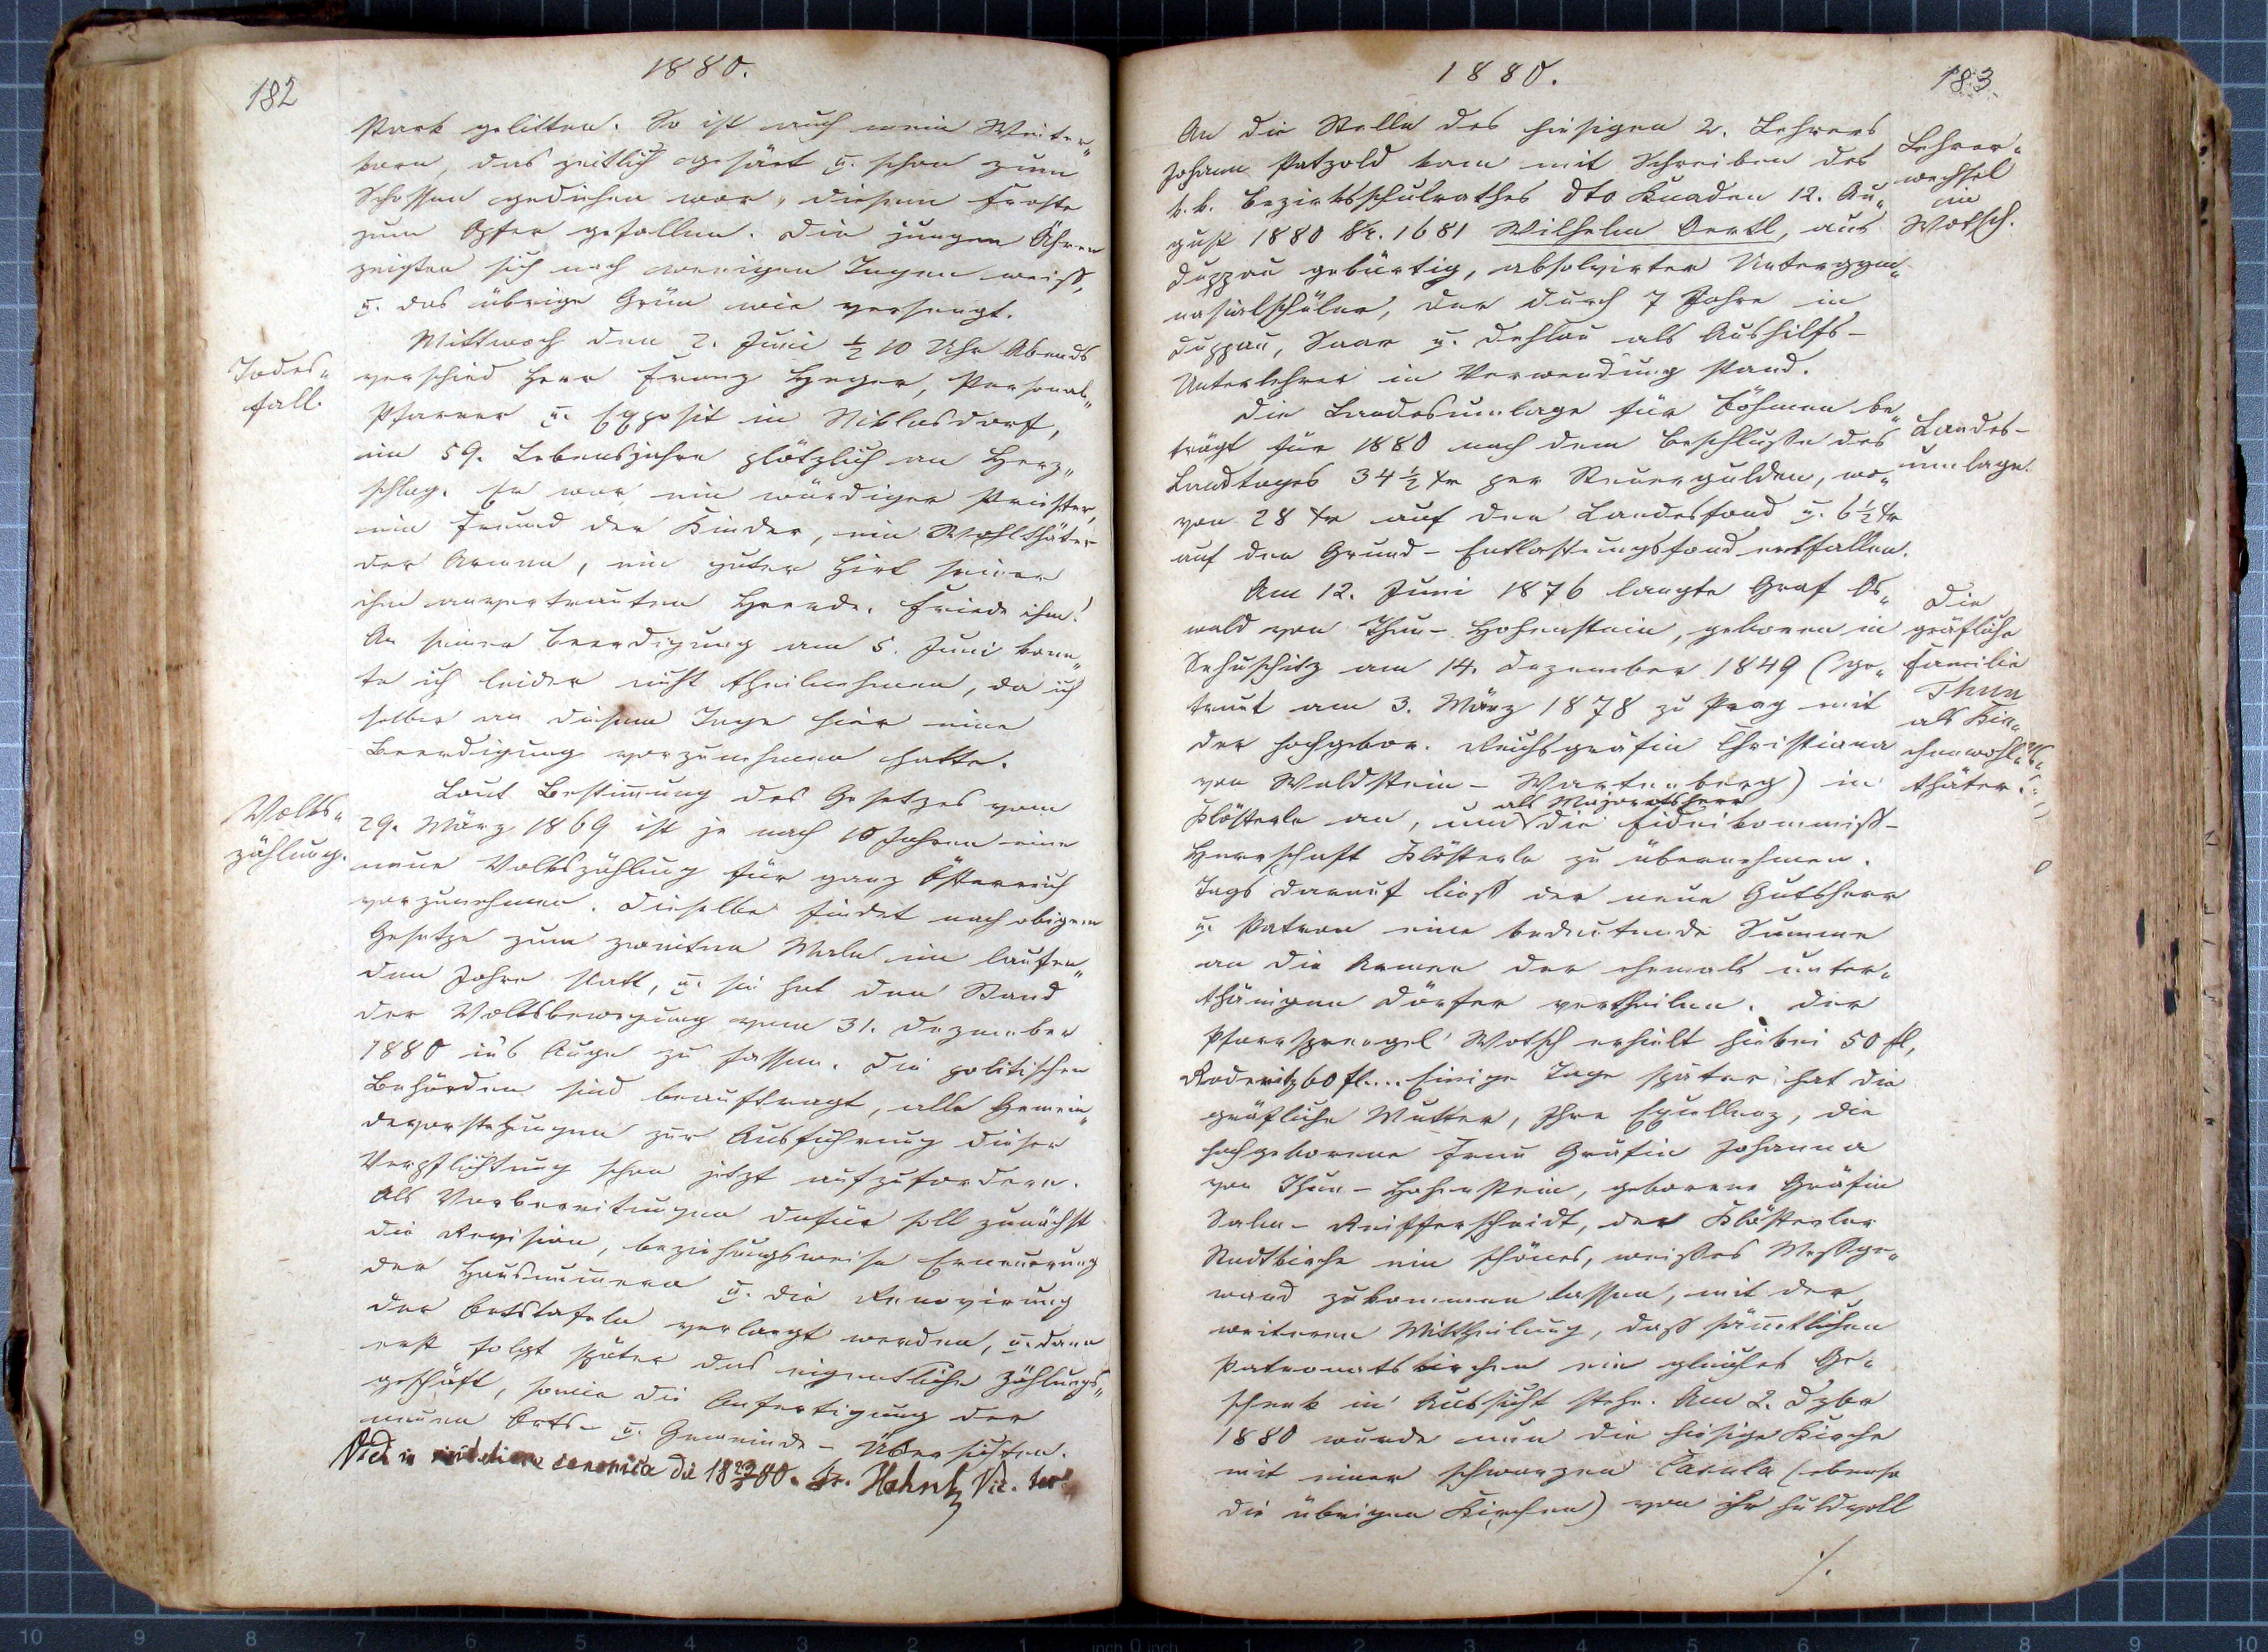 182
1880.
stark gelitten. So ist auch mein Winter„
korn, das zeitlich gesäet u. schon zum
Schossen gediehen war, diesem Froste
zum Opfer gefallen. Die jungen Ähren
zeigten sich nach wenigen Tagen weiß,
u. das übrige Grün wie versengt.
Todes„
fall.
Mittwoch den 2. Juni ½ 10 Uhr Abends
verschied Herr Franz Heger, Personal„
Pfarrer u. Exposit in Niklasdorf,
im 59. Lebensjahre plötzlich an Herz„
schlag. Er war ein würdiger Priester,
ein Freund der Kinder, ein Wohlthäter
der Armen, ein guter Hirt seiner
ihm anvertrauten Heerde. Friede ihm!
An seiner Beerdigung am 5. Juni konn„
te ich leider nicht theilnehmen, da ich
selber an diesem Tage hier eine
Beerdigung vorzunehmen hatte.
Volks„
zählung.
Laut Bestimung des Gesetzes vom
29. März 1869 ist je nach 10 Jahren eine
neue Volkszählung für ganz Österreich
vorzunehmen. Dieselbe findet nach obigem
Gesetze zum zweiten Male im laufen„
den Jahre statt, u. sie hat den Stand
der Volksbewegung vom 31. Dezember
1880 ins Auge zu fassen. Die politischen
Behörden sind beauftragt, alle Gemein„
devorstehungen zur Ausführung dieser
Verpflichtung schon jetzt aufzufordern.
Als Vorbereitungen dafür soll zunächst
die Revision, beziehungsweise Erneuerung
der Hausnumern u. die Renovirung
der Ortstafeln verlangt werden, u. dann
erst folgt später das eigentliche Zählungs„
geschäft, sowie die Anfertigung der
neuen Orts- u. Gemeinde-Übersichten.
Vidi in canonica die 18 80. Vic.
1880.
183
An die Stelle des hiesigen 2. Lehrers
Johann Patzold kam mit Schreiben des
k. k. Bezirksschulrathes dto Kaaden 12. Au„
gust 1880 Z. 1681 Wilhelm Oertl, aus
Duppau gebürtig, absolvirter Untergym„
nasialschüler, der durch 7 Jahre in
Duppau, Saar u. Dehlau als Aushilfs-
Unterlehrer in Verwendung stand.
Lehrer„
wechsel
in
Wotsch.
Die Landesumlage für Böhmen be„
trägt für 1880 nach dem Beschlusse des
Landtages 34½ xr per Steuergulden, wo„
von 28 xr auf den Landesfond u. 6½ xr
auf den Grund-Entlastungsfond entfallen.
Landes-
umlage.
Am 12. Juni 1876 langte Graf Os„
wald von Thun-Hohenstein, geboren in
Sehuschitz am 14. Dezember 1849 (ge„
traut am 3. März 1878 zu Prag mit
der hochgebor. Reichsgräfin Christiana
von Waldstein-Wartenberg) in
Klösterle an, um als Majoratsherr die Fideikommiß-
Herrschaft Klösterle zu übernehmen.
Tags darauf ließ der neue Gutsherr
u. Patron eine bedeutende Summe
an die Armen der ehemals unter„
thänigen Dörfer vertheilen. Der
Pfarrsprengel Wotsch erhielt hiebei 50 fl,
Rodewitz 60 fl.... Einige Tage später hat die
gräfliche Mutter, Ihre Exellenz, die
hochgeborene Frau Gräfin Johanna
von Thun-Hohenstein, geborene Gräfin
Salm-Reifferscheidt, der Klösterler
Stadtkirche ein schönes, weißes Meßge„
wand zukommen lassen, mit der
weiteren Mittheilung, daß sämtlichen
Patronatskirchen ein gleiches Ge„
schenk in Aussicht stehe. Am 2. Dzbr
1880 wurde nun die hiesige Kirche
mit einer schwarzen Casula (ebenso
die übrigen Kirchen) von ihr huldvoll
./.
Die
gräfliche
Familie
Thun
als Kir„
chenwohl„
thäter.